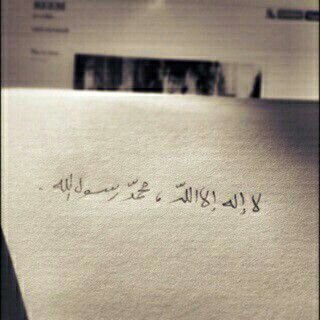 لا إله إلا اللّه ، محمّد رسول الله .